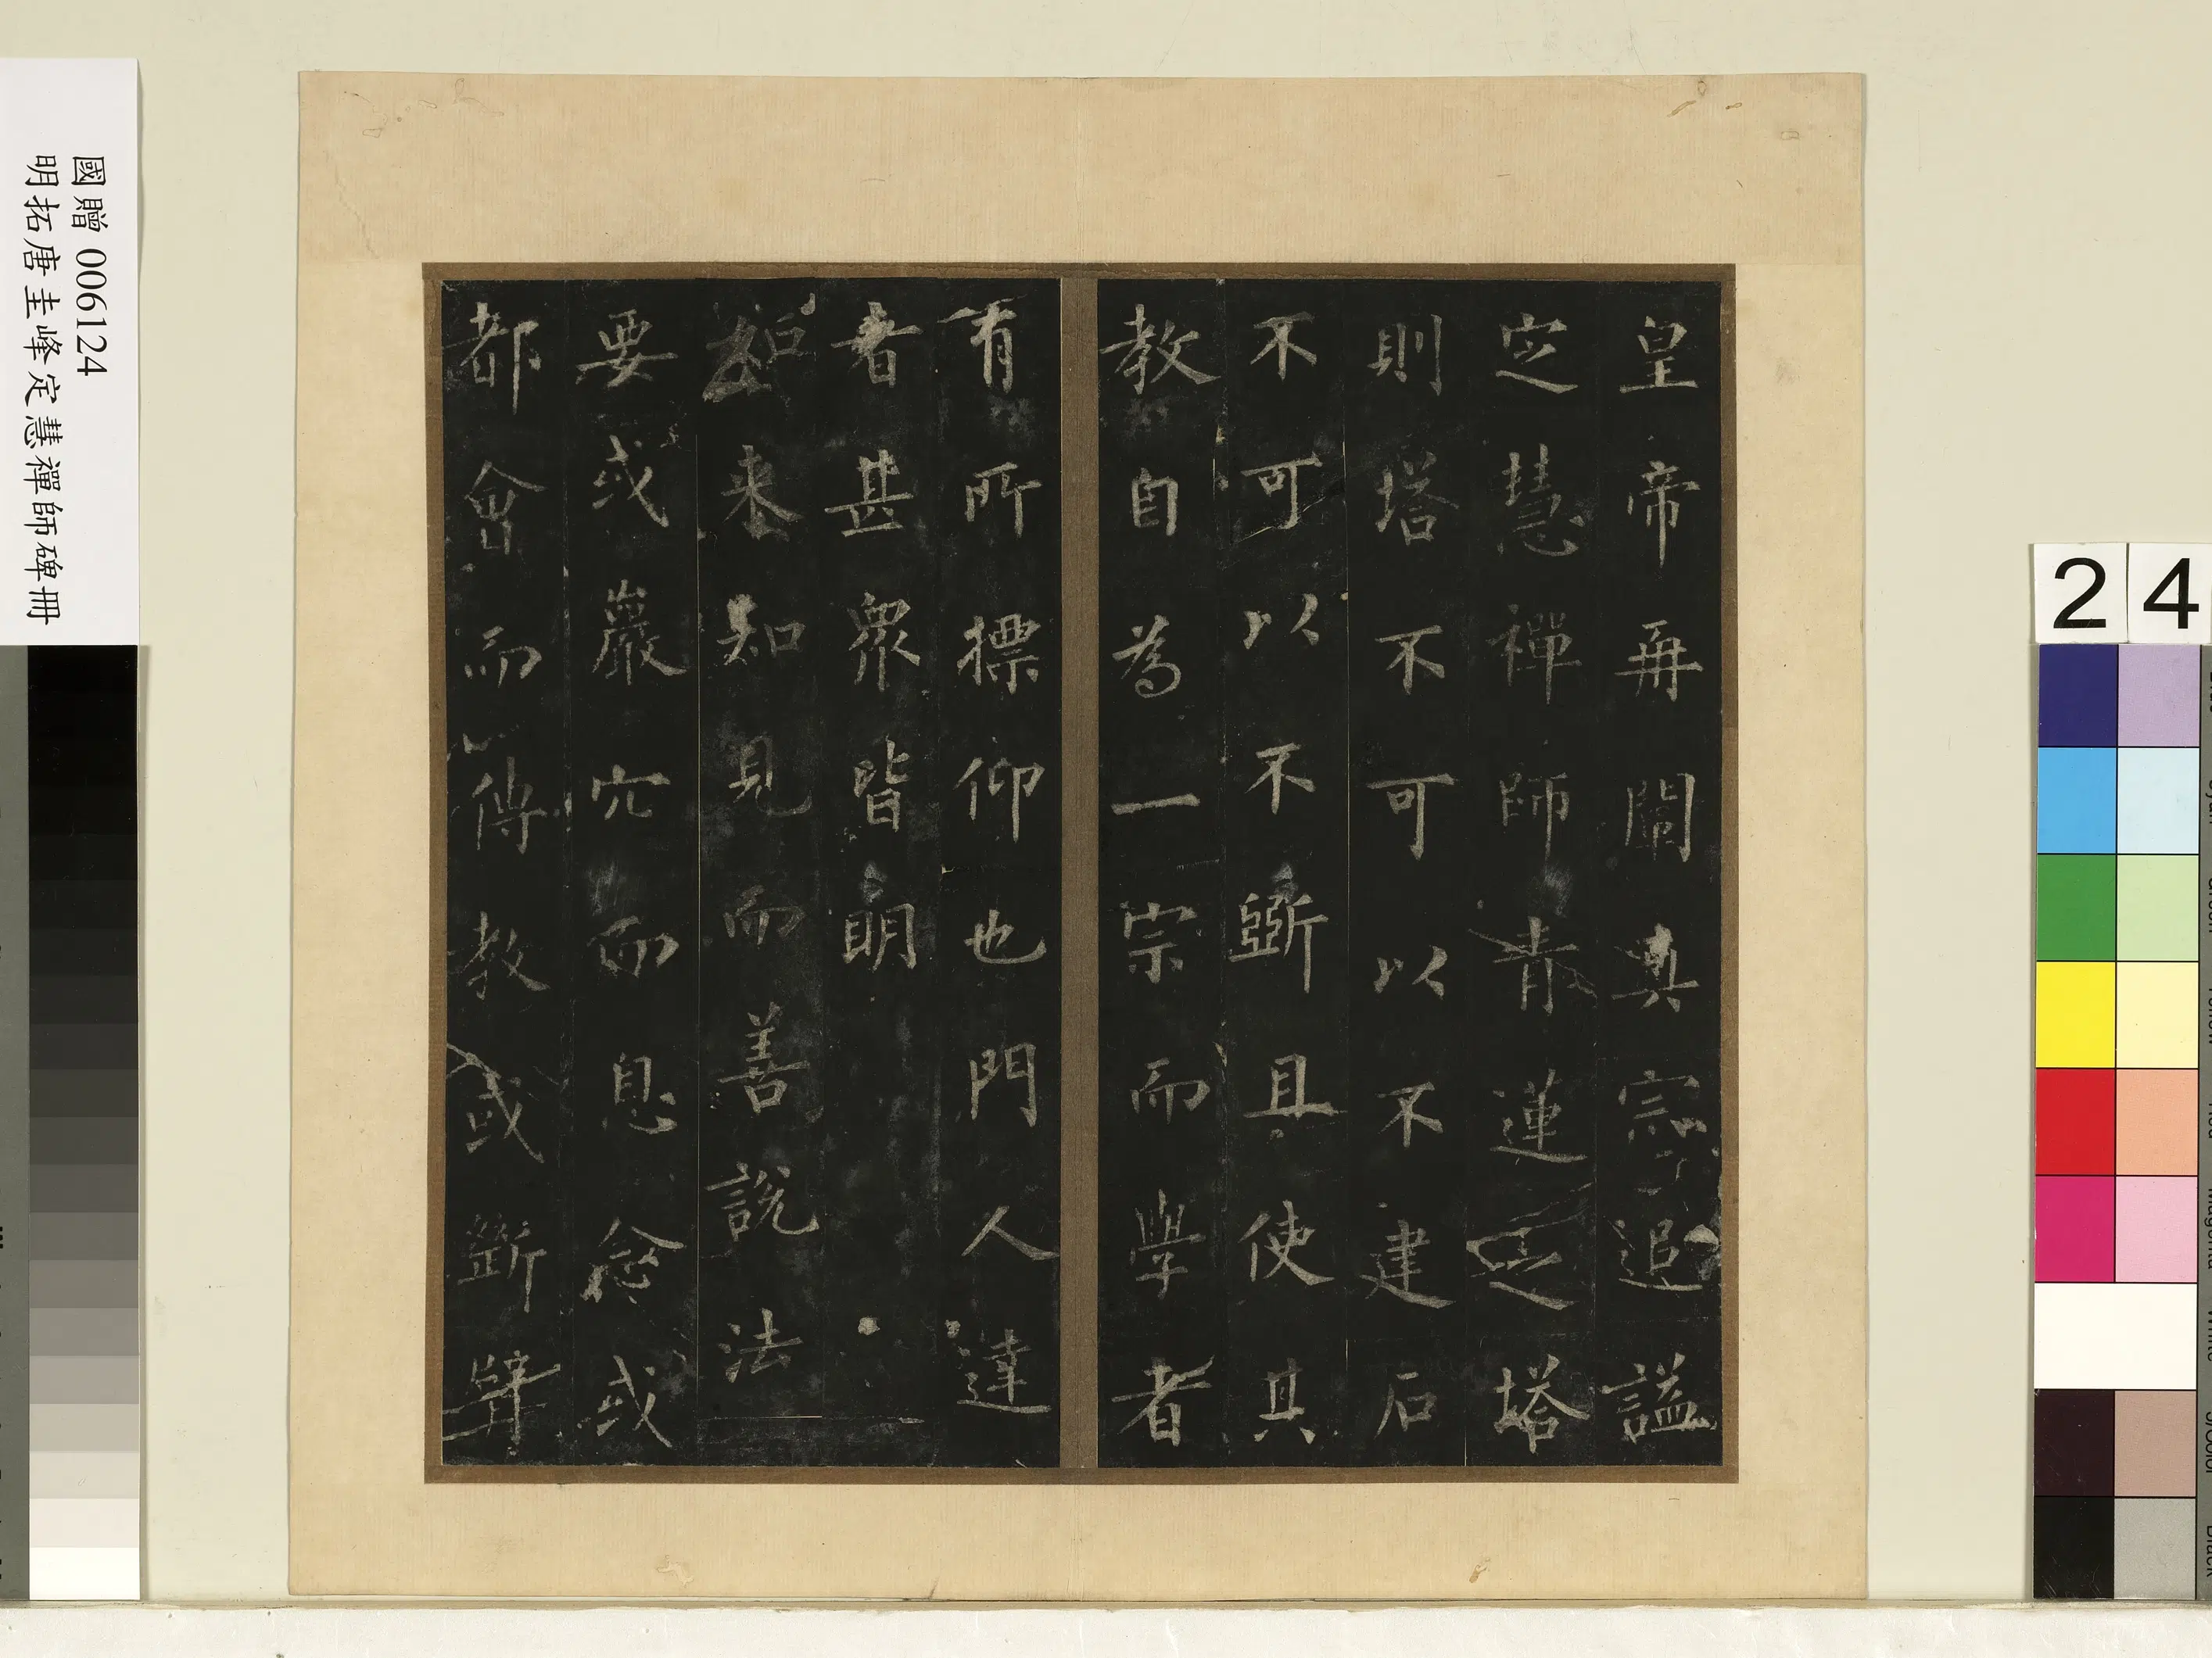 國贈 006124
明拓唐圭峰定慧禪師碑冊
皇帝再闡真宗追謚
定慧禪師青蓮之塔
則塔不可以不建石
不可以不斵且使其
教自為一宗而學者
有所摽仰也門人達
者甚眾皆明
如来知見而善說法
要或巖穴而息念或
都會而傳教或斷臂
24